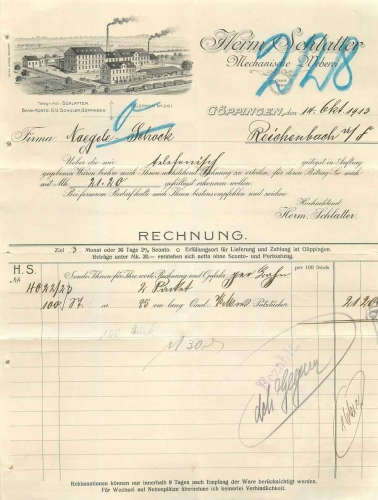 Herm. Schlatter
Mechanische Weberei
228
Telegr. Adr. SCHLATTER.
BANK-KONTO: G.G. SCHULER, GÖPPINGEN.
GÖPPINGEN, den 14. Okt. 1913
Firma Naegele Schock Reichenbach a/F
Ueber die mir telefonisch gefälligst in Auftrag
gegebenen Waren beehre mich Ihnen nachstehend Rechnung zu erteilen, für deren Betrag Sie mich
mit Mk. 21.20 gefälligst erkennen wollen.
Bei fernerem Bedarf halte mich Ihnen bestens empfohlen und zeichne
Hochachtend
Herm. Schlatter.
RECHNUNG.
Ziel 3 Monat oder 30 Tage 2% Sconto. o Erfüllungsort für Lieferung und Zahlung ist Göppingen.
Beträge unter Mk. 20.— verstehen sich netto ohne Sconto- und Portoabzug.
H. S.
Sandte Ihnen für Ihre werte Rechnung und Gefahr per Bahn per 100 Stück
№ 4022/23 2 Packet
100/87 85 cm lang 21 20
Bezahlt
Reklamationen können nur innerhalb 8 Tagen nach Empfang der Ware berücksichtigt werden.
Für Wechsel auf Nebenplätze übernehme ich keinerlei Verbindlichkeit.